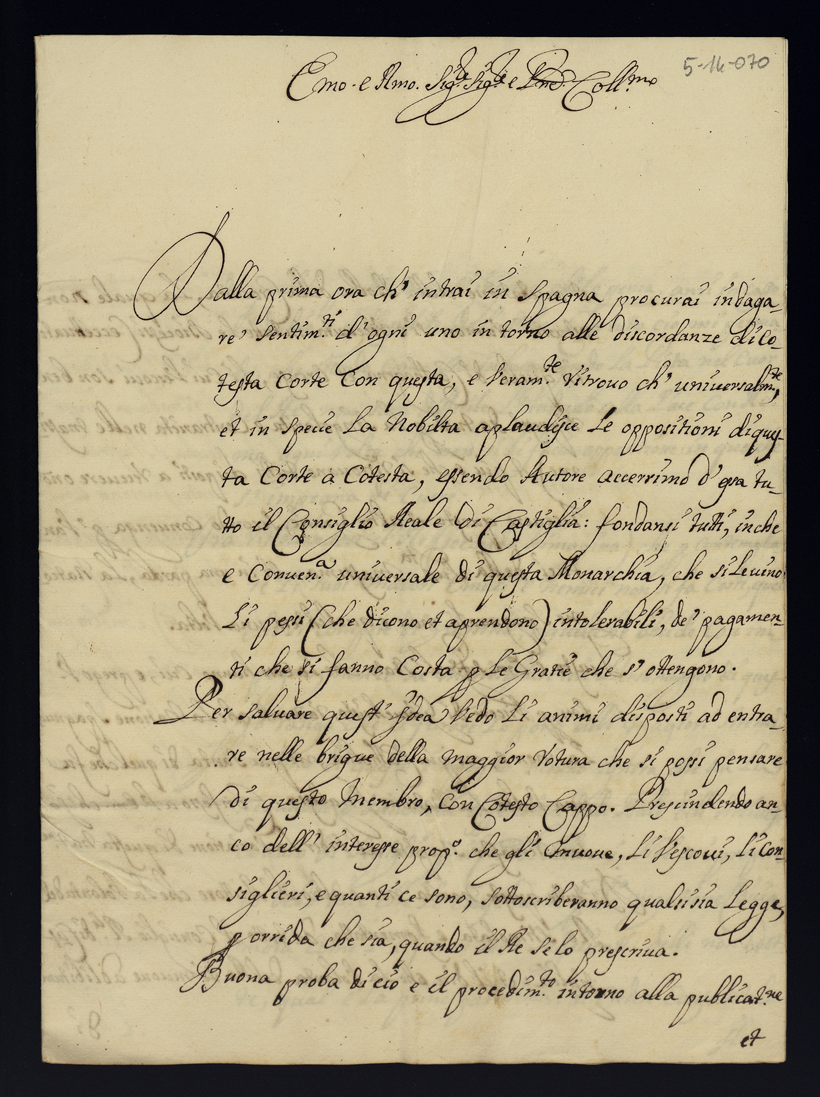 5-14-070
Emo. e Rmo. Sig.re Sig.re e Pnd. Coll.mo
Dalla prima ora ch' intrai in Spagna procurai indaga-
re' sentim.ti d'ogni uno intorno alle discordanze di Co-
testa Corte Con questa, e veram.te vitrovo ch' universalm.te,
et in specie La Nobilta aplaudisce Le oppositioni di ques-
ta Corte a Cotesta, essendo Autore accerrimo d'essa tu-
tto il Consiglio Reale di Castiglia: fondansi tutti, in che
e Conven.a universale di questa Monarchia, che si Levino
Li pessi (che dicono et aprendono) intolerabili, de' pagamen-
ti che si fanno Costa p Le Gratie che s'ottengono.
Per salvare quest' Idea Vedo Li animi disposti ad entra-
re nelle brigue della maggior Votura che si possi pensare
di questo Membro, Con Cotesto Cappo. Prescindendo an-
co dell' interesse prop.o che gli muove, Li Vescovi, Li Con-
siglieri, e quanti ce sono, sottoscriberanno qualsisia Legge,
p orrida che sia, quando il Re se lo prescriva.
Buona proba di cio e il procedim.to intorno alla publicat.ne
et